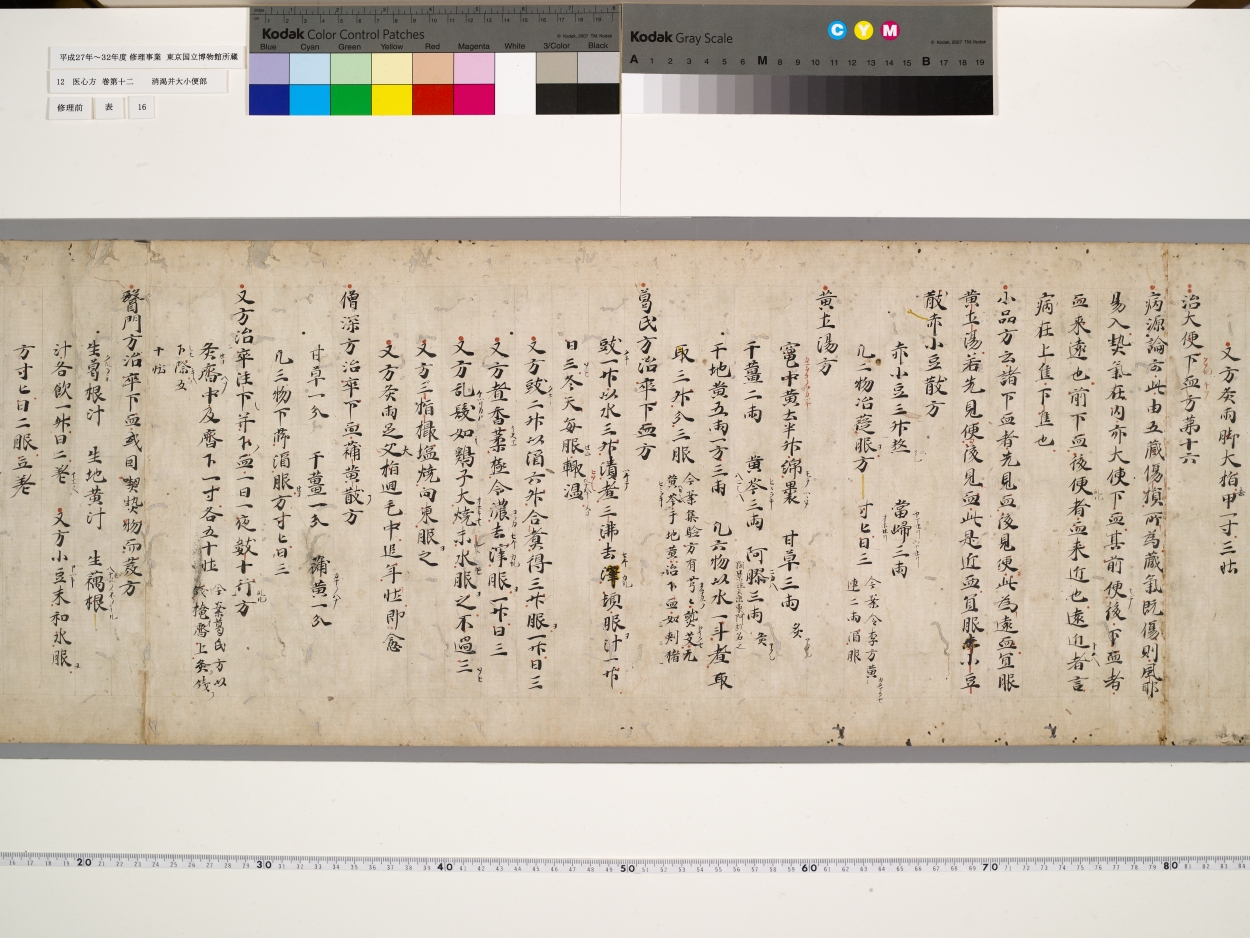 平成27年～32年度 修理事業 東京国立博物館所蔵
12 医心方 巻第十二 消渇并大小便部
修理前 表 16
Kodak Color Control Patches
Blue Cyan Green Yellow Red Magenta White 3/Color Black
Kodak Gray Scale
C Y M
A 1 2 3 4 5 6 M 8 9 10 11 12 13 14 15 B 17 18 19
又方灸兩脚大指甲寸三壮
治大便下血方第十六
病源論云此由五藏傷損所為藏氣既傷則風邪
易入熱氣在内亦大便下血其前便後下血者
血来遠也前下血後便者血来近也遠近者言
病在上焦下焦也
小品方云諸下血者先見血後見便此為遠血宜服
黄土湯若先見便後見血此是近血宜服赤小豆
散赤小豆散方
赤小豆三升熬 當歸三兩
凡二物冶篩服方寸匕日三 今案令李方黄連二兩酒服
黄土湯方
竈中黄土半升綿裹 甘草三兩炙
干薑二兩 黄芩三兩 阿膠三兩炙
干地黄五兩一方三兩 凡六物以水一斗煮取
取三升分三服
葛氏方治卒下血方
豉一升以水三升漬煮三沸去滓頓服汁一升
日三冬天每服輙温
又方豉二升以酒六升合煮得三升服一升日三
又方煮香葇極令濃去滓服一升日三
又方乱髪如鷄子大燒末水服之不過三
又方三指撮塩燒向東服之
又方灸兩足大指廻毛中追年壮即愈
僧深方治卒下血蒲黄散方
甘草一分 干薑一分 蒲黄一分
凡三物下篩酒服方寸匕日三
又方治卒注下并下血一日一夜數十行方
灸齊中及齊下一寸各五十壮 今案葛氏方以
十壮
醫門方治卒下血或因喫熱物而發方
生葛根汁 生地黄汁 生藕根
汁各飲一升日二老 又方小豆末和水服
方寸匕日二服立老
20 30 40 50 60 70 80